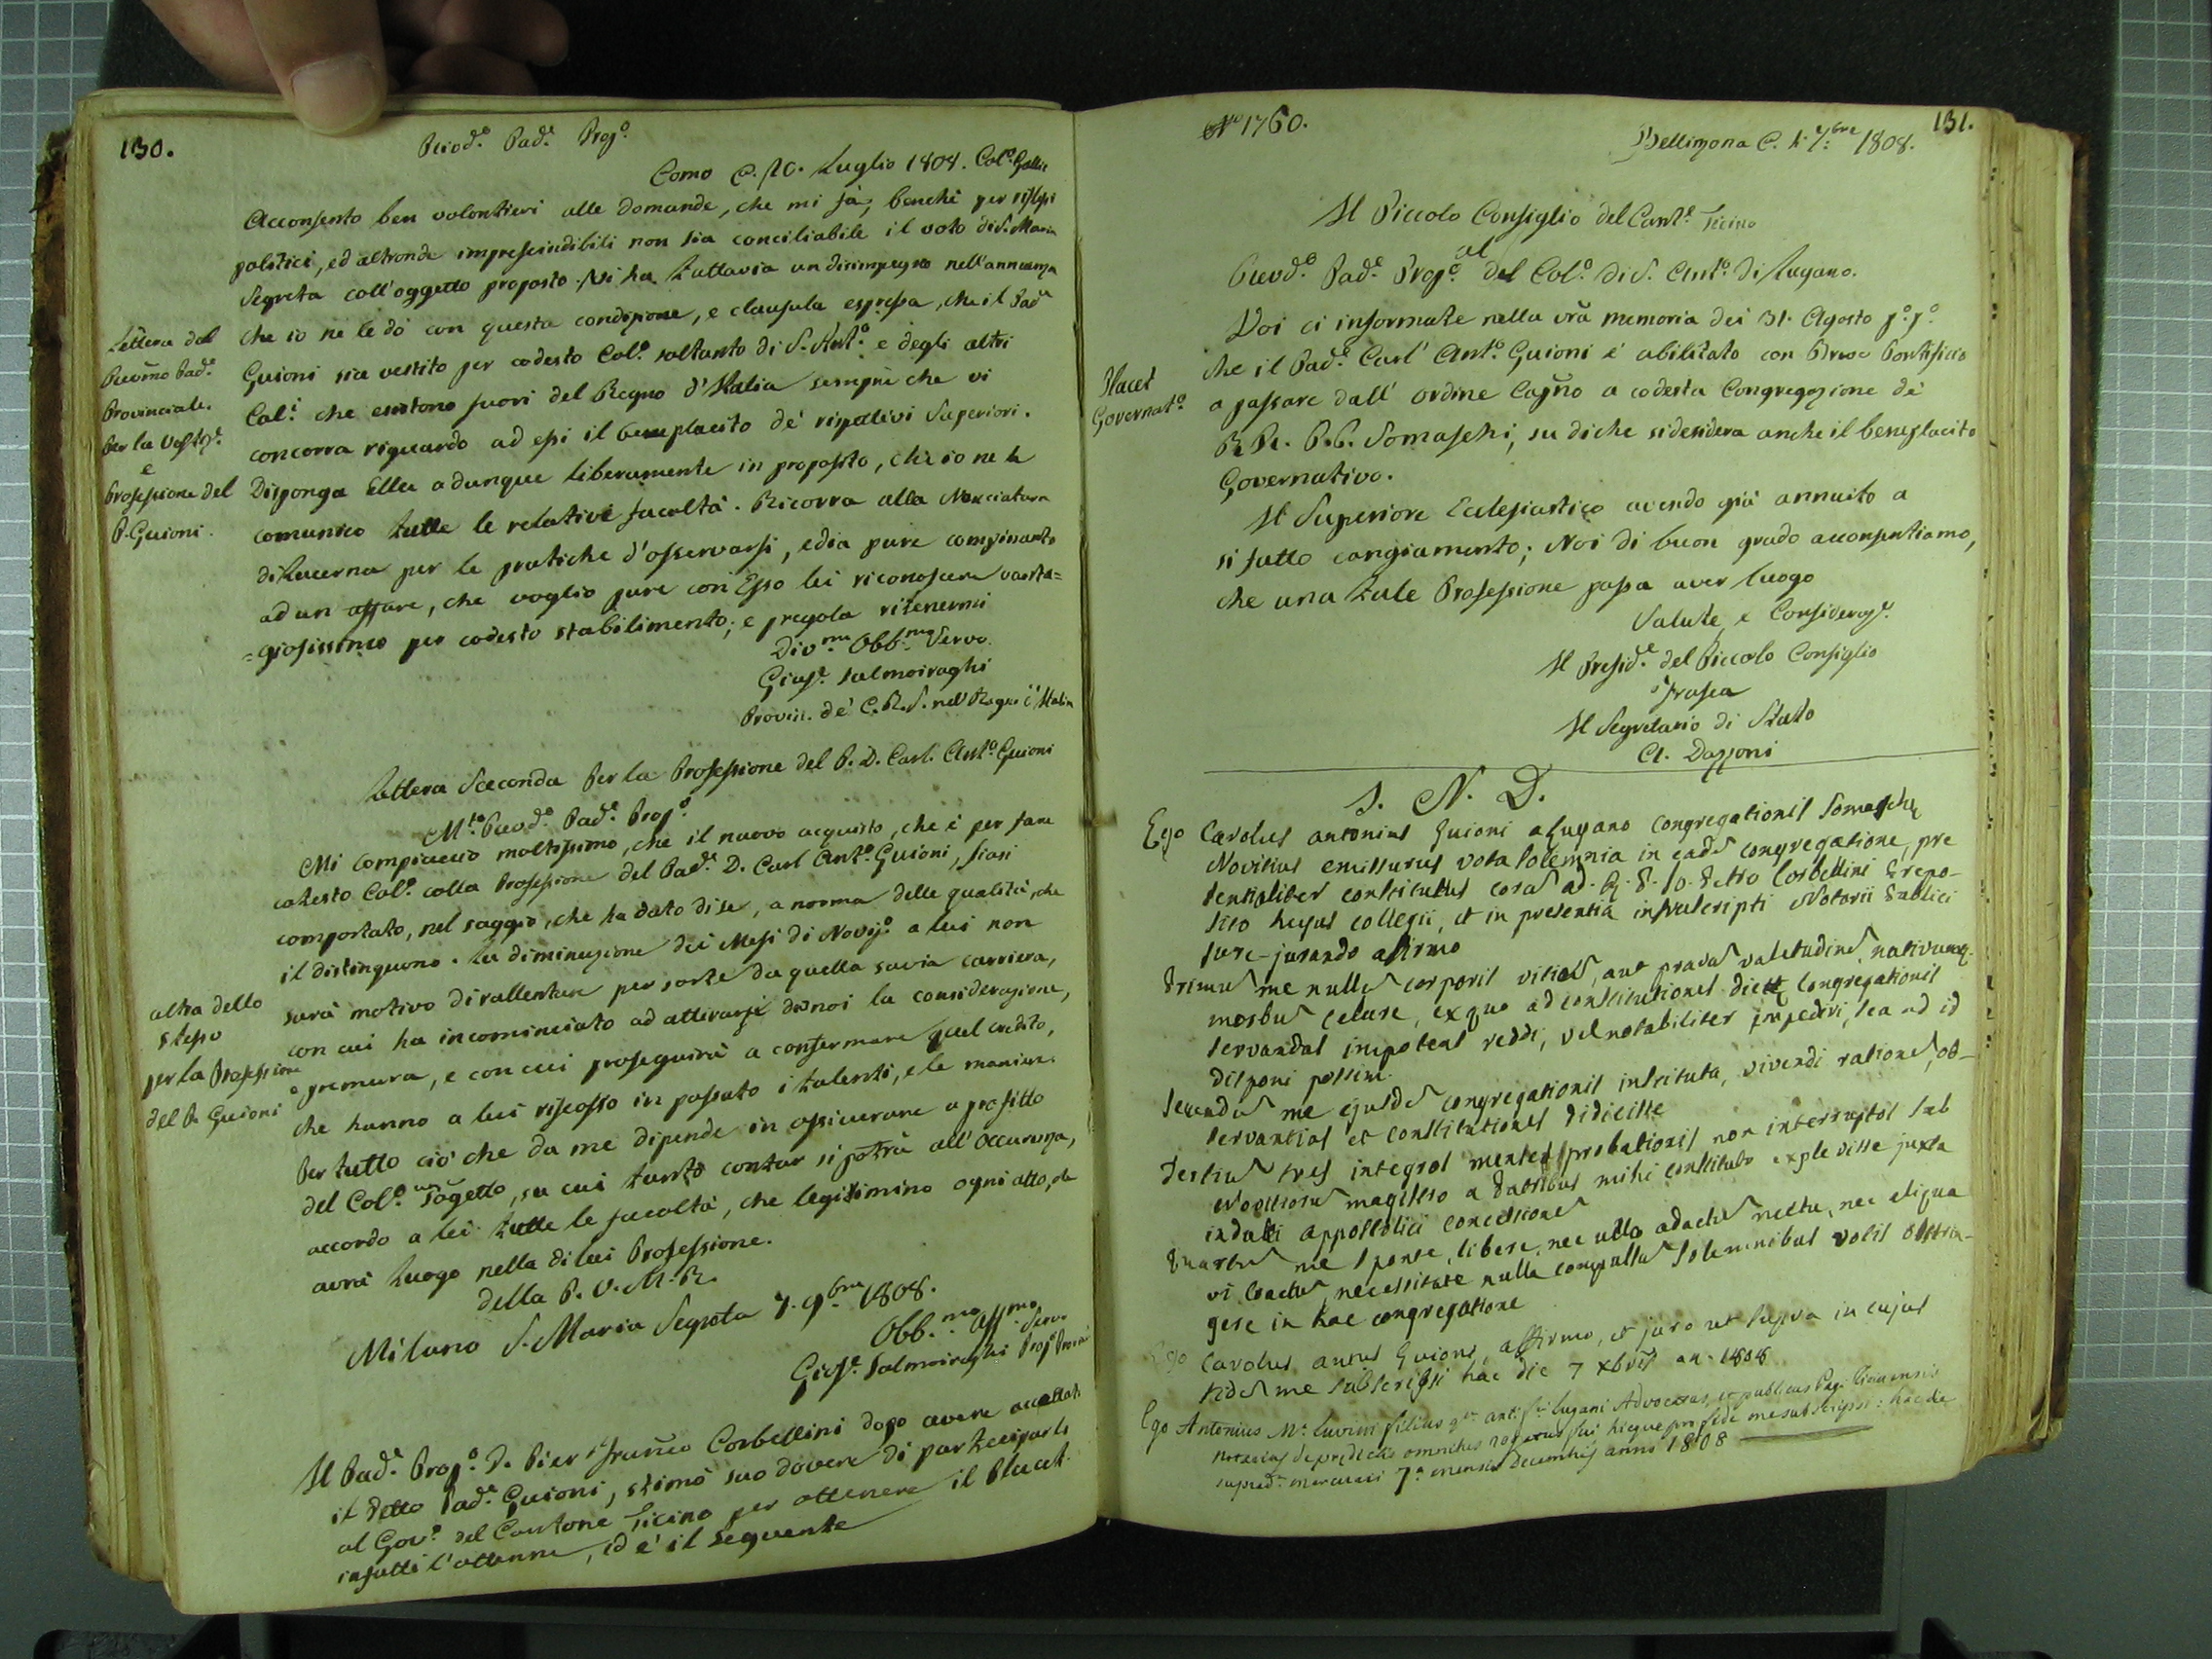 130.
Revd.º Pad.e Prop.º
Como C. 20. Luglio 1808. Col.º Gallio
Acconsento ben volontieri alle domande, che mi fà, benchè per riflessi
politici, ed altronde imprescindibili non sia conciliabile il voto di S. Maria
Segreta coll'oggetto proposto. Vi ha tuttavia un disimpegno nell'annuenza
che io ne le dò con questa condizione, e clausula espressa, che il Pad.e
Guioni sia vestito per codesto Col.º soltanto di S. Ant.º e degli altri
Col.i che esistono fuori del Regno d'Italia sempre che vi
concorra riguardo ad essi il beneplacito de' rispettivi Superiori.
Disponga Ella adunque liberamente in proposito, che io ne le
comunico tutte le relative facoltà. Ricorra alla Nunciatura
di Lucerna per le pratiche d'osservarsi, e dia pure compimento
ad un affare, che voglio pure con Esso lei riconoscere vanta=
=giosissimo per codesto stabilimento; e pregola ritenermi
Div.mo Obb.mo Servo
Gius.e Salmoiraghi
Provin. de' C.R.S. nel Regno d'Italia
Lettera del
Revmo Pad.e
Provinciale.
Per la Vestiz.e
e
Professione del
P. Guioni.
Lettera Seconda Per la Professione del P. D. Carl. Ant.º Guioni
M.to Revd.º Pad.e Prop.º
Mi compiaccio moltissimo, che il nuovo acquisto, che è per fare
cotesto Col.º colla Professione del Pad.e D. Carl Ant.º Guioni, siasi
comportato, nel saggio, che ha dato di se, a norma delle qualità, che
il distinguono. La diminuzione dei Mesi di Noviz.º a lui non
sarà motivo di rallentare per sorte da quella savia carriera,
con cui ha incominciato ad attirarsi da noi la considerazione,
e premura, e con cui proseguirà a confermare quel credito,
che hanno a lui riscosso in passato i talenti, e le maniere.
Per tutto ciò che da me dipende in assicurare a profitto
del Col.º un sogetto, su cui tanto contar si potrà all'occurenza,
accordo a lei tutte le facoltà, che legittimino ogni atto, che
avrà luogo nella di lui Professione.
della P. V. M. R.
Milano S. Maria Segreta 7. 9bre 1808.
Obb.mo Aff.mo Servo
Gius.e Salmoiraghi Prop.º
altra dello
stesso
per la Professione
del P. Guioni
Il Pad.e Prop.º D. Pier Franco Corbellini dopo avere accettato
il detto Pad.e Guioni, stimò suo dovere di parteciparlo
al Gov.º del Cantone Ticino per ottenere il Placet.
infatti l'ottenne, ed e' il seguente
131.
Nº 1760.
Bellinzona C. li 7bre 1808.
Il Piccolo Consiglio del Cant.e Ticino
al
Revd.º Pad.e Prop.º del Col.º di S. Ant.º di Lugano.
Voi ci informate nella vra memoria dei 31. Agosto p.º p.º
che il Pad.e Carl' Ant.º Guioni è abilitato con Breve Pontificio
a passare dall' ordine Capno a codesta Congregazione dè
R.R. P.P. Somaschi, su di che si desidera anche il beneplacito
Governativo.
Placet
Governat.º
Il Superiore Eclesiastico avendo già annuito a
si fatto cangiamento; Noi di buon grado acconsentiamo,
che una tale Professione possa aver luogo
Salute, e Consideraz.e
Il Presid.e del Piccolo Consiglio
Frasca
Il Segretario di Stato
A. Dazzoni
I. N. D.
Ego Carolus antonius Guioni a Lugano congregationis Somaschę
Novitius emissurus vota solemnia in eadē congregatione, pre
sentialiter constitutus corā ad. R. P. D. Petro Corbellini Prepo-
sito hujus collegii, et in presentia infrascripti Notarii Publici
jure-jurando afirmo
Primū me nullū corporis vitiū, aut pravā valetudinē, nativumq.
morbū celare, ex quo ad constitutiones dictę congregationis
servandas impotens reddi, vel notabiliter impediri, sea ad id
disponi possim.
Secundū me ejusdē congregationis instituta, vivendi rationē, ob-
servantias et constitutiones didicisse
Tertiū tres integros menses probationis non interruptos sub
Novitiorū magistro a Patribus mihi constituto explevisse juxta
indulti appostolici concessionē
Quartū me sponte, libere, nec ullo adactū metu, nec aliqua
vi coactū, necessitate nulla compulsū solemnibus votis obstrin-
gere in hac congregatione
Ego Carolus antus Guioni, affirmo, et juro ut supra in cujus
fidē me subscripsi hac die 7 Xbris an. 1808
Ego Antonius Mª. Luvini filius q.m Lugani Advocatus, et publicus
notarius de predictis omnibus rogatus fui hicque pro fide me subscripsi: hac die
supradª mercurii 7ª mensis decembris anno 1808